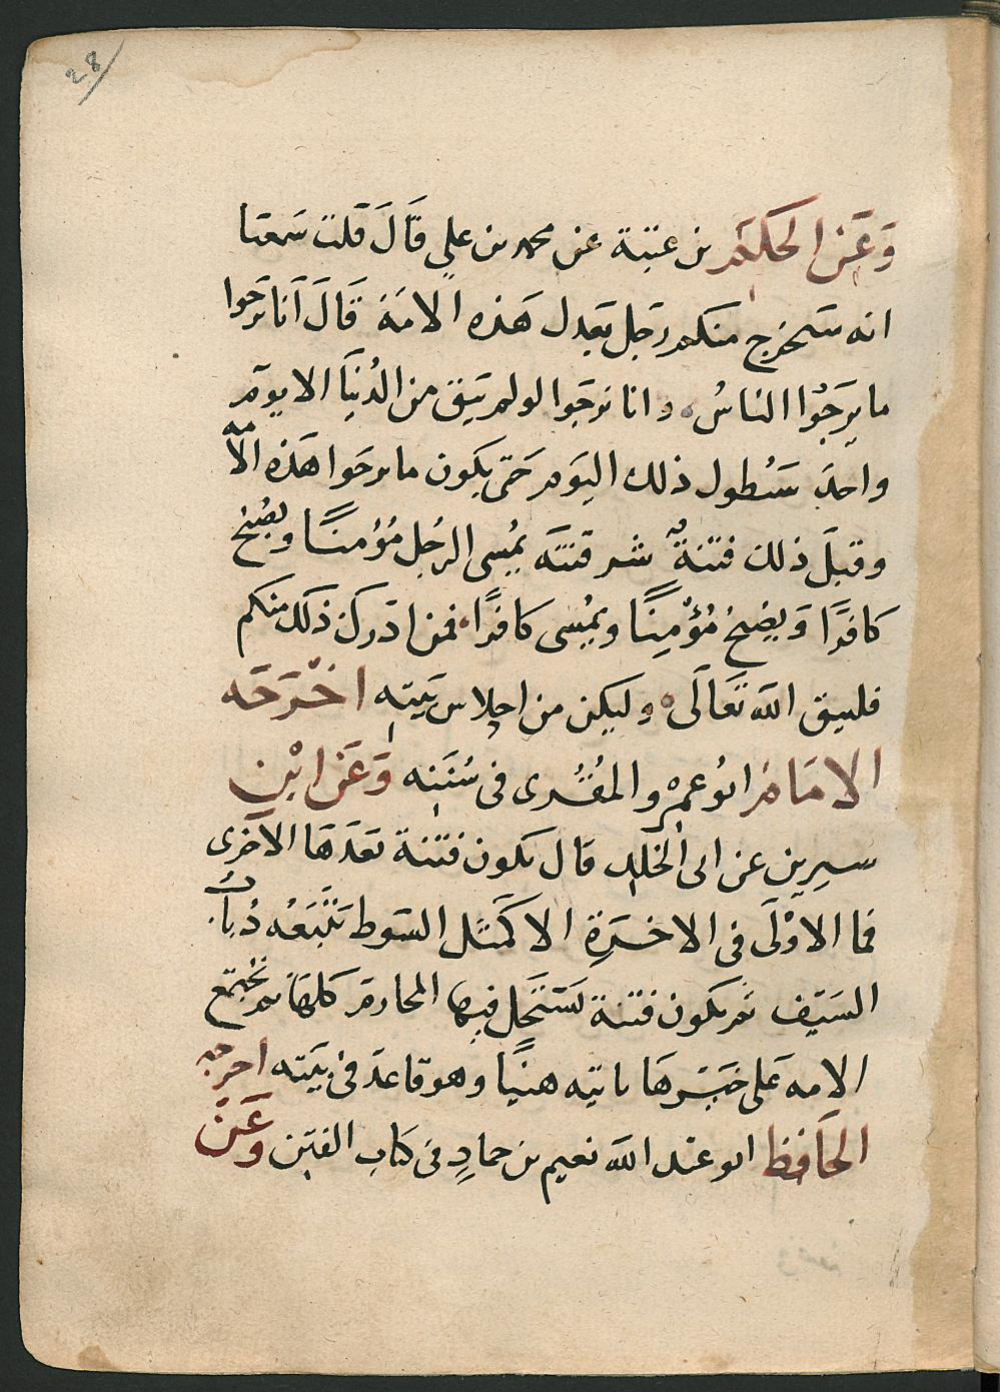 28
وَعَنِ الحَكَم بن عتبة عن محمد بن علي قَالَ قلت سَمعنا
انه سَيخرج منكم رَجل يَعدل هَذه الامّة قَالَ اَنا نرَجوا
ما يرَجُوا الناسُ وانا نرجَوا لو لم يَبق من الدُنيَا الا يومٌ
واحدَ سَيُطول ذلك اليَوم حَتى يكون ما نرجَوا هَذه الأمّة
وقبلَ ذلك فتنةٌ شر فتنَه يمُسِى الرجُل مُؤمنًا ويُصبح
كافرًا وَيصبحُ مُؤمِنًا ويمُسى كافرًا فمن ادَرك ذلك منكم
فليتق الله تَعَالَى وليكن من احلاس بَيته اخْرَجَه
الامَامُ ابوُ عمرو المقُرى فى سُنَنِه وَعَنْ ابْنِ
سيرين عن ابى الجَلد قال تكون فتنة بَعدَهَا الاخرى
فما الاوْلَى فى الاخرَة الا كمَثل السَوط تَتْبَعُه ذُبابُ
السَيف ثم تكون فتنة تسَتَحَل فيها المحارم كلهَا ثم تجْتمَع
الامه عَلى خيَرهَا ياتيه هنيًا وهو قاعد فى بَيَته اخرجه
الحَافِظ ابو عبد الله نعيم بن حمادٍ فى كتاب الفتَن وَعَنْ